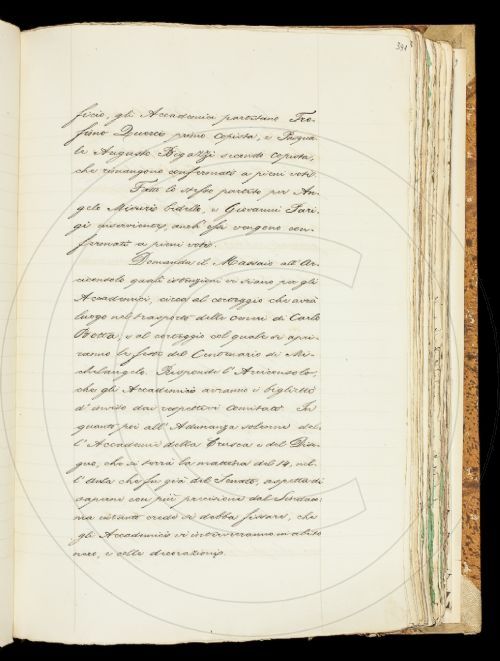 391
ficio, gli Accademici partitano Tro-
fimo primo Copista, e Pasqua
le Augusto Bigazzi secondo Copista,
che rimangono confermati a pieni voti.
Fatto lo stesso partito per An-
gelo bidello, e Giovanni Pari-
gi inserviente, anch'essi vengono con-
fermati a pieni voti.
Domanda il Massaio all'Ar-
ciconsolo quali istruzioni vi siano per gli
Accademici, circa al corteggio che avrà
luogo nel trasporto delle ceneri di Carlo
Botta, e al corteggio col quale si apri-
ranno le feste del Centenario di Mi-
chelangelo. Risponde l'Arciconsolo,
che gli Accademici avranno i biglietti
d'invito dai respettivi Comitati. In
quanto poi all'Adunanza solenne del-
l'Accademia della Crusca e del Dise-
gno, che si terrà la mattina del 14, nel-
l'Aula che fu già del Senato, aspetta di
sapere con più precisione dal Sindaco;
ma intanto crede si debba fissare, che
gli Accademici vi interverranno in abito
nero, e colle decorazioni.